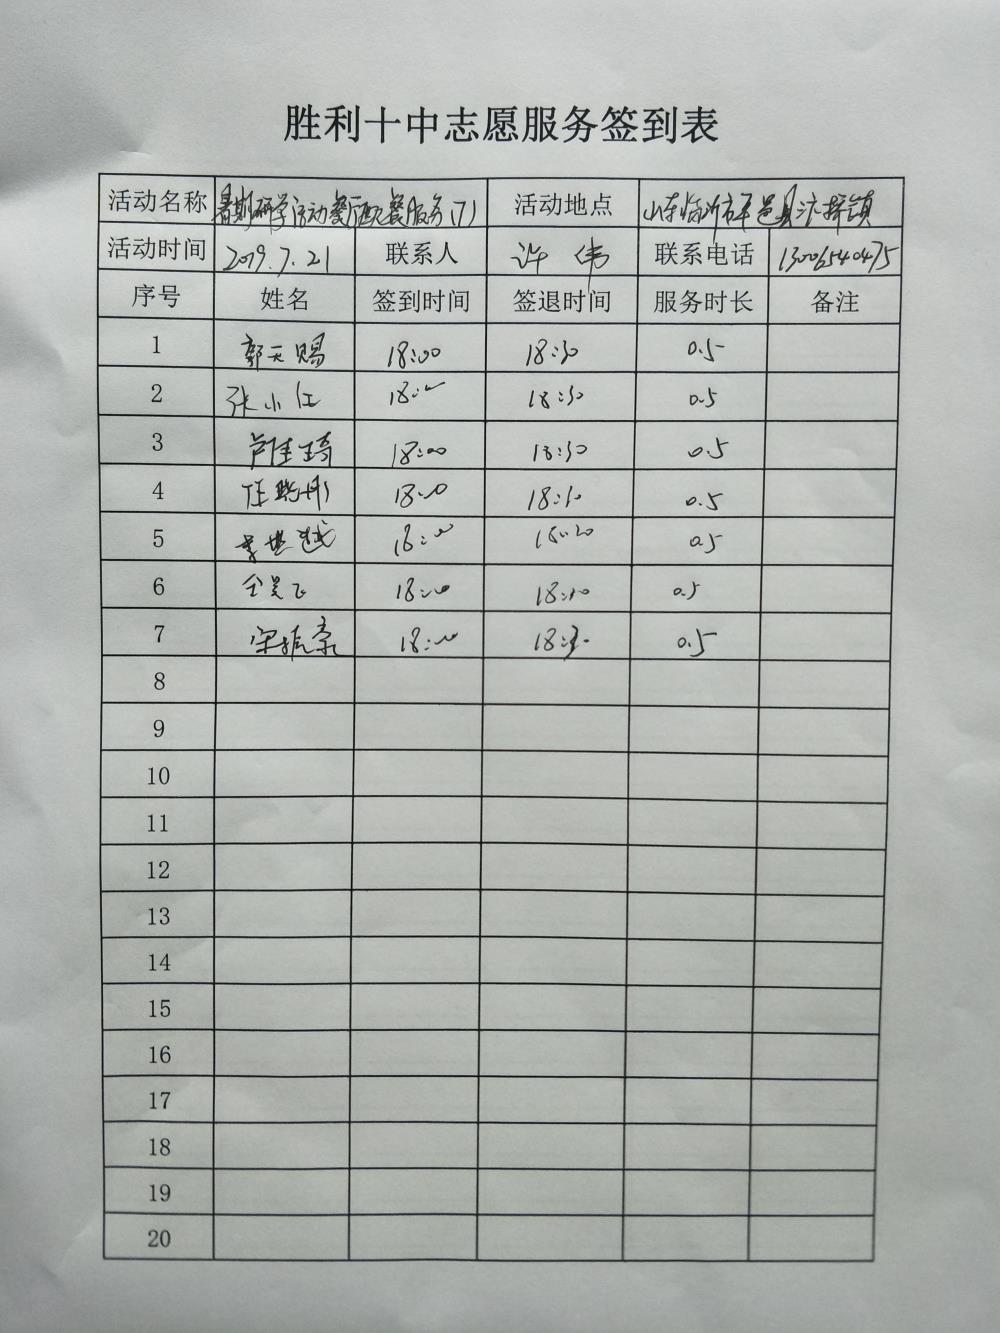 胜利十中志愿服务签到表
活动名称 暑期研学活动餐厅配餐服务(7) 活动地点 山东临沂市平邑县汴桥镇
活动时间 2019.7.21 联系人 许伟 联系电话 13006540475
序号 姓名 签到时间 签退时间 服务时长 备注
1 郭天赐 18:00 18:30 0.5
2 张小红 18:00 18:30 0.5
3 18:00 18:30 0.5
4 任晓彤 18:00 18:30 0.5
5 18:00 0.5
6 18:00 0.5
7 宋振豪 18:00 18:30 0.5
8
9
10
11
12
13
14
15
16
17
18
19
20